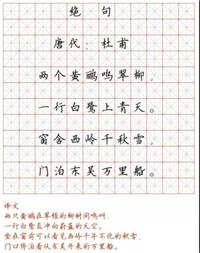 绝句
唐代：杜甫
两个黄鹂鸣翠柳，
一行白鹭上青天。
窗含西岭千秋雪，
门泊东吴万里船。
译文
两只黄鹂在翠绿的柳树间鸣叫，
一行白鹭直冲向蔚蓝的天空。
坐在窗前可以看见西岭千年不化的积雪，
门口停泊着从东吴开来的万里船。